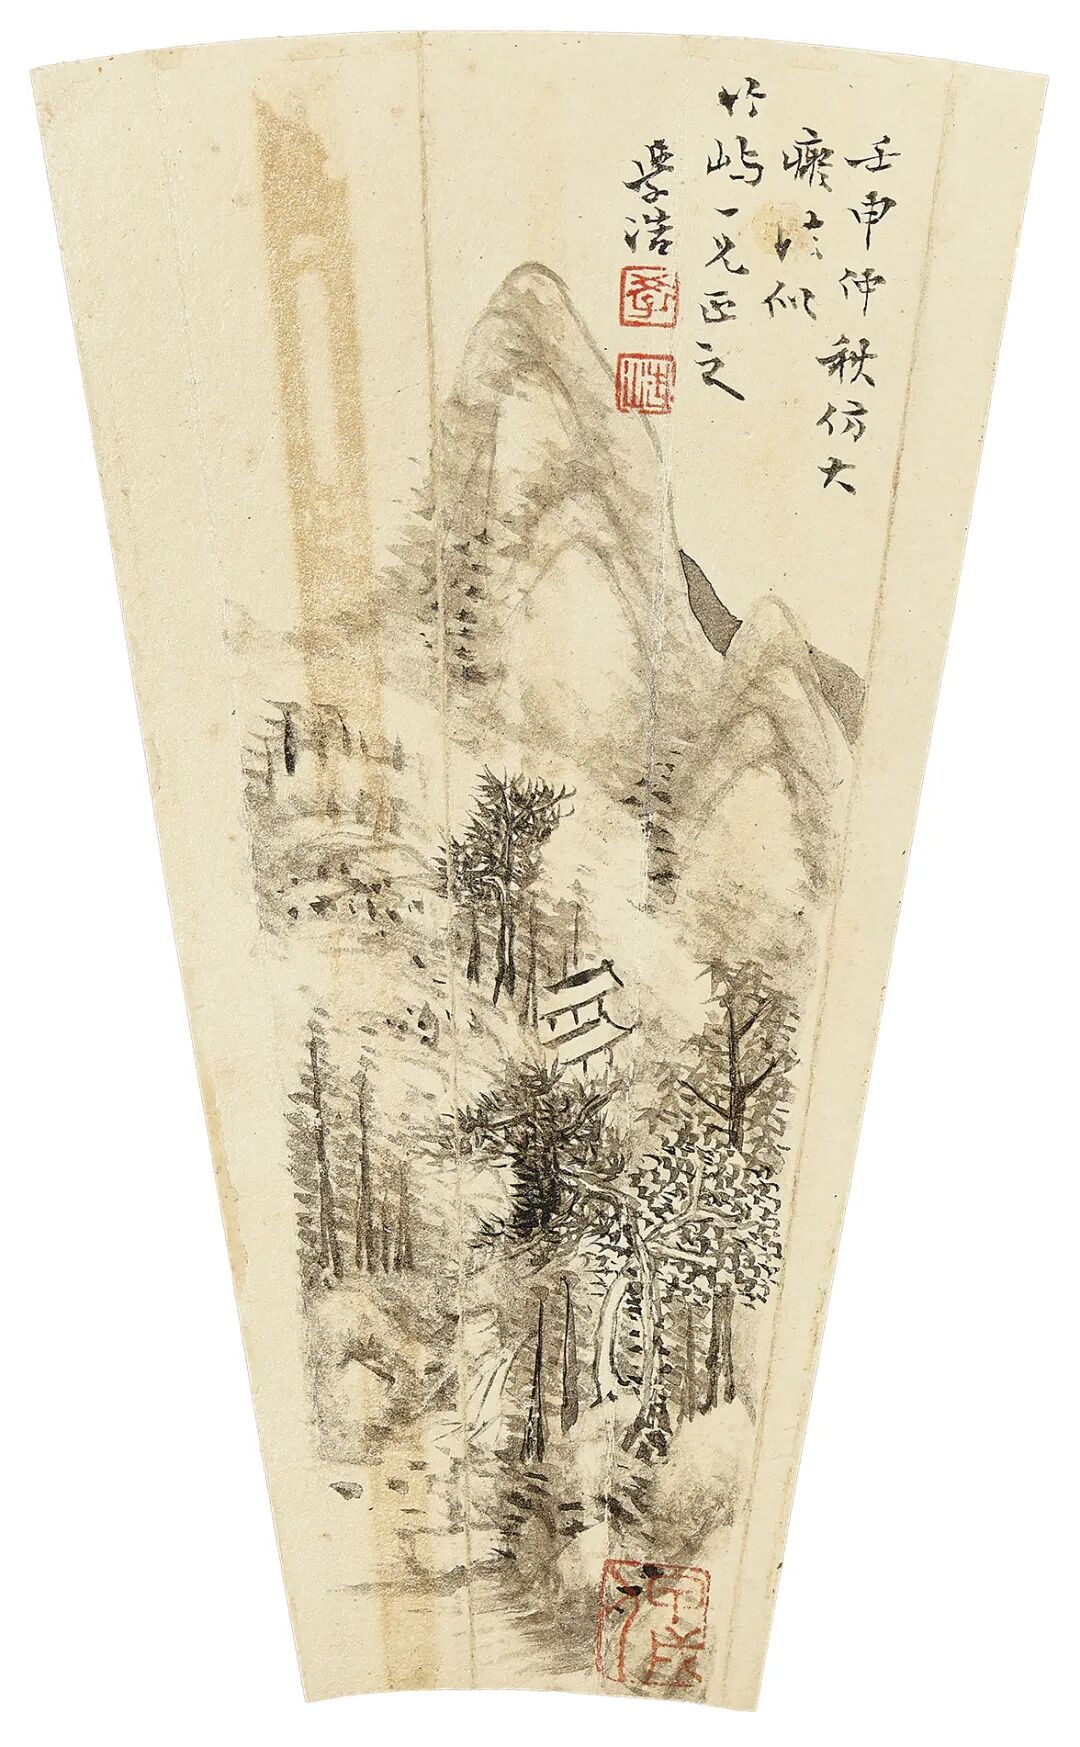 壬申仲秋仿大
癡法似
竹屿一兄正之
學浩